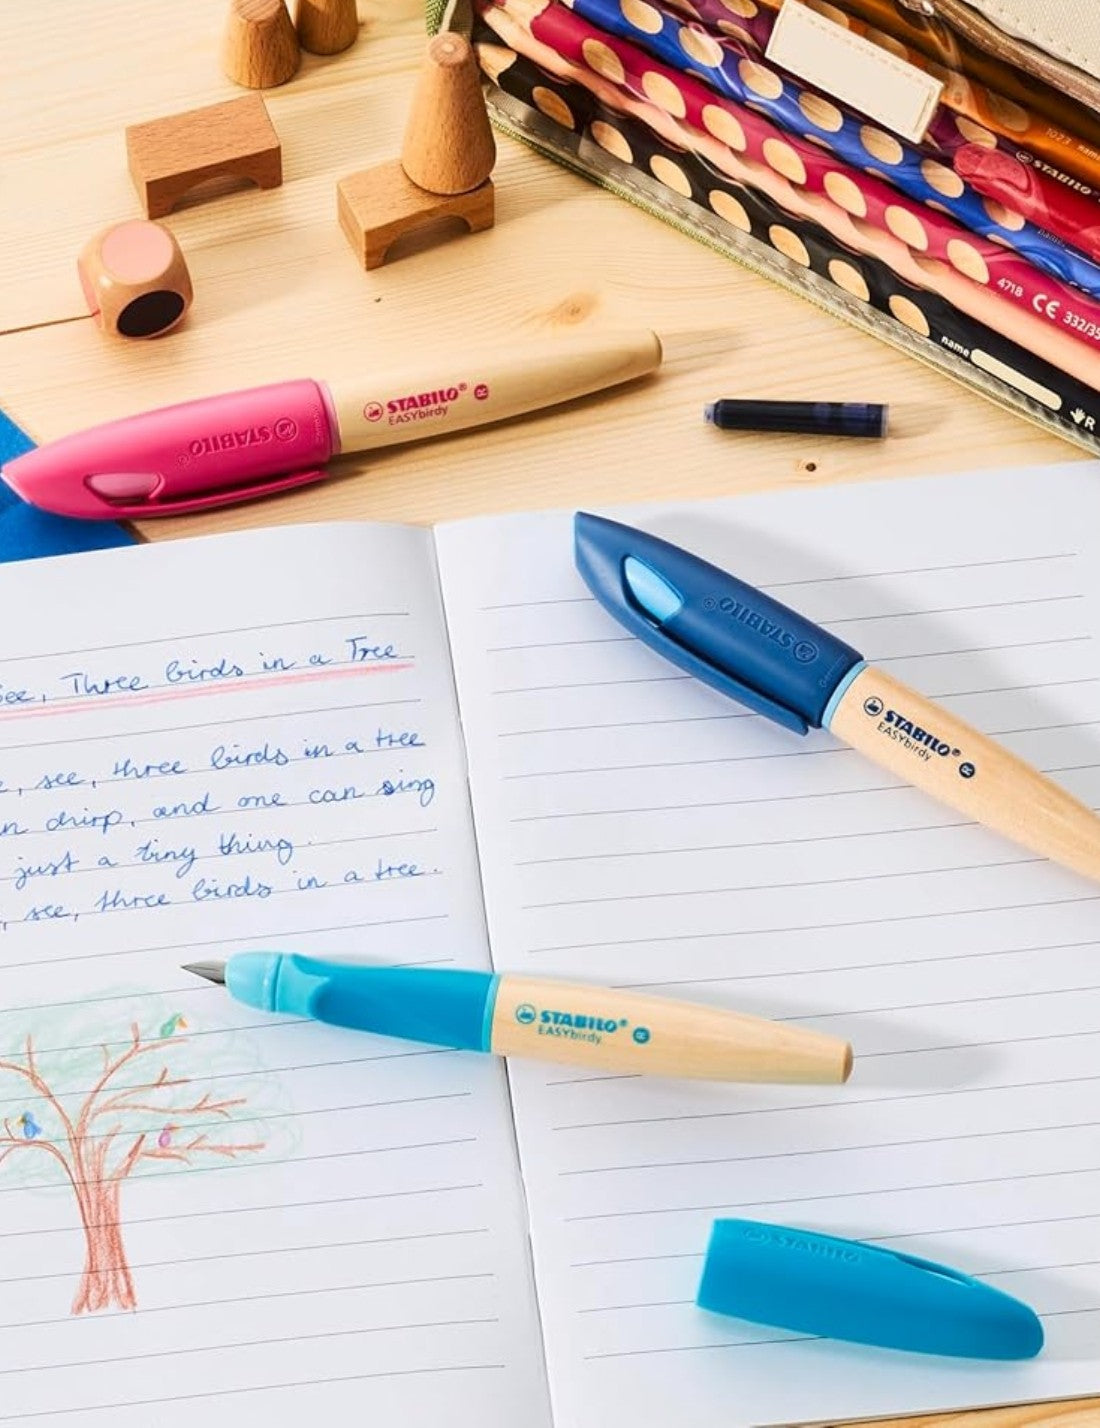 1073
STABILO
4718 CE 332/35
name
R
STABILO® R
EASYbirdy
STABILO
STABILO
STABILO® R
EASYbirdy
See, Three birds in a Tree
see, three birds in a tree
chirp, and one can sing
just a tiny thing.
see, three birds in a tree.
STABILO® R
EASYbirdy
STABILO